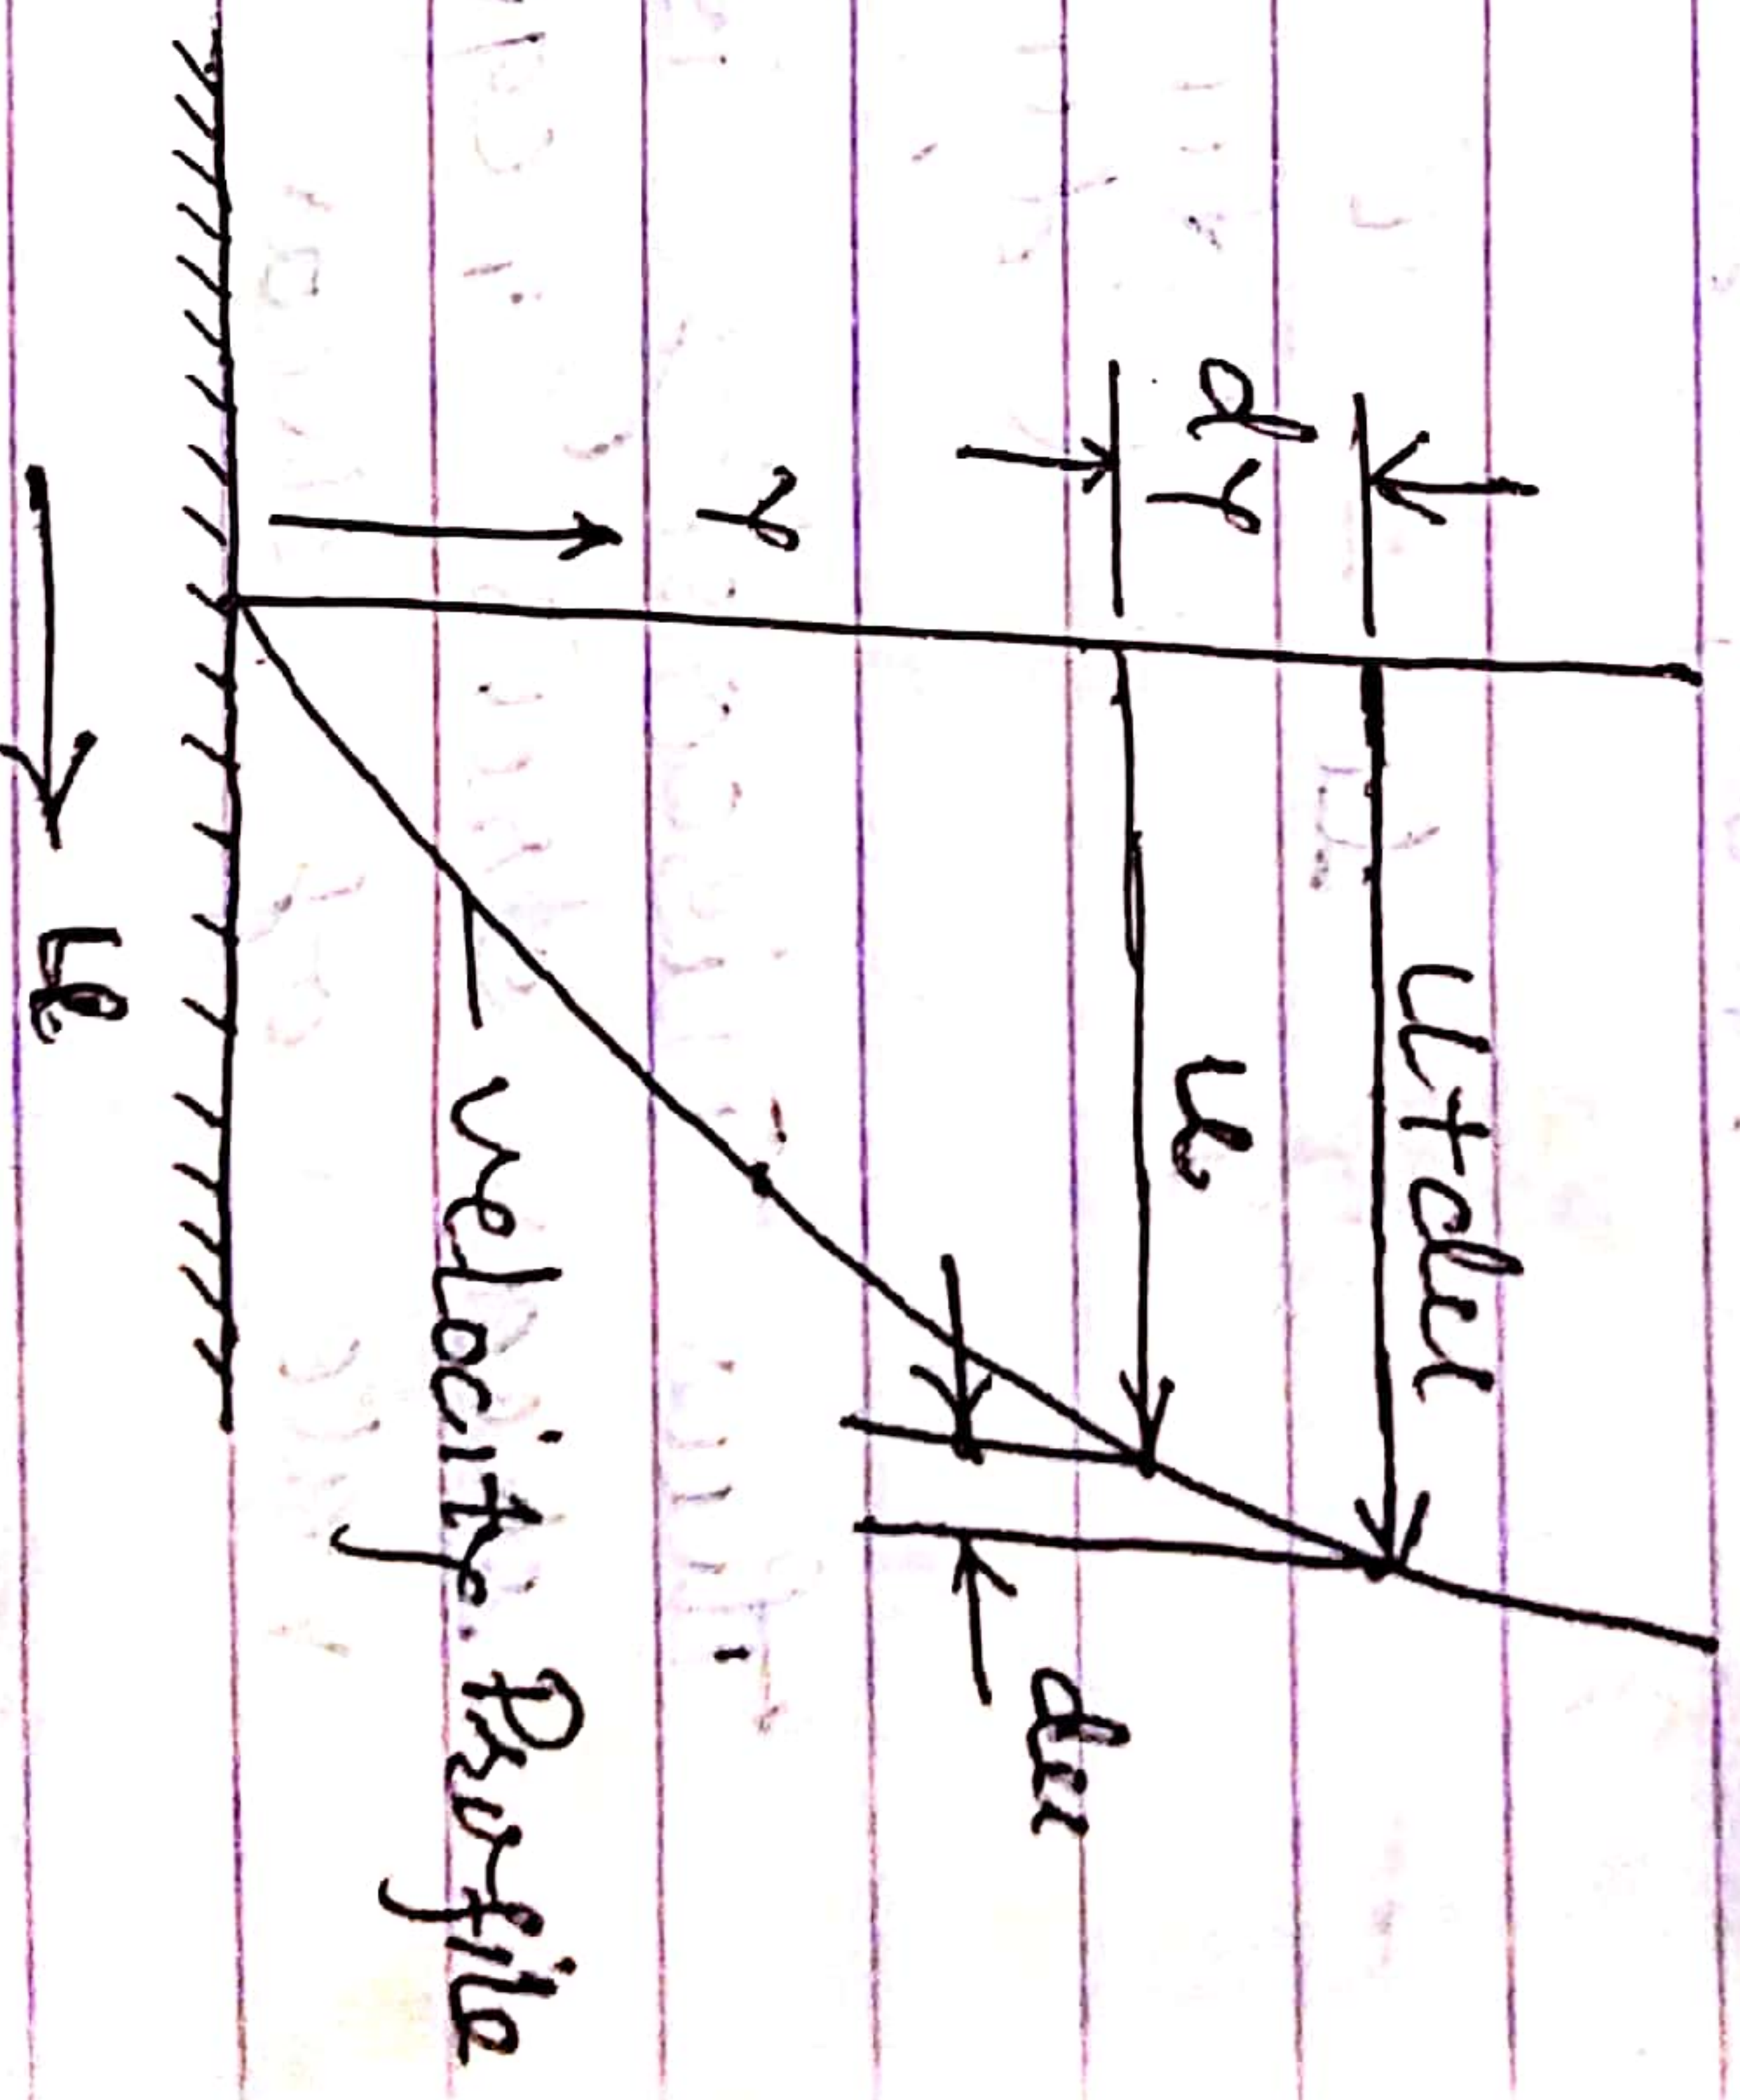 u+du
dy
u
du
y
Velocity. Profile
u